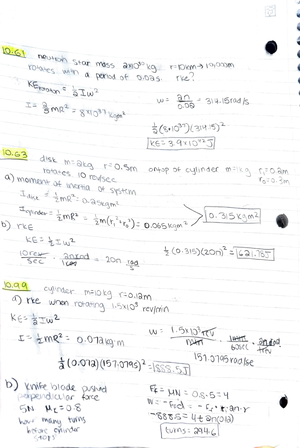 10.61 neutron star mass 2x10³⁰ kg r=10km → 10,000m
rotates with a period of 0.02s. rke?
KE rotation = ½Iω²
I = ⅖mR² = 8x10³⁷ kgm²
ω = 2π/0.02 = 314.15 rad/s
½(8x10³⁷)(314.15)²
KE = 3.9x10⁴² J
10.63 disk m=2kg r=0.5m on top of cylinder m=1kg r₁=0.2m
rotates 10 rev/sec r₂=0.3m
a) moment of inertia of system
I disk = ½mR² = 0.25kgm²
I cylinder = ½mR² = ½m(r₁²+r₂²) = 0.065kgm²
0.315kgm²
b) rke
KE = ½Iω²
10rev/sec · 2πrad/1rev = 20π rad/s
½(0.315)(20π)² = 621.78J
10.99 cylinder m=10kg r=0.12m
a) rke when rotating 1.5x10³ rev/min
KE = ½Iω²
I = ½mR² = 0.072kgm
ω = 1.5x10³rev/min · 1min/60sec · 2πrad/1rev
157.0795rad/sec
½(0.072)(157.0795)² = 888.5J
b) knife blade pushed
perpendicular force
5N μk=0.8
how many turns
before cylinder
stops
Fk = μN = 0.8·5 = 4
turns: 294.6